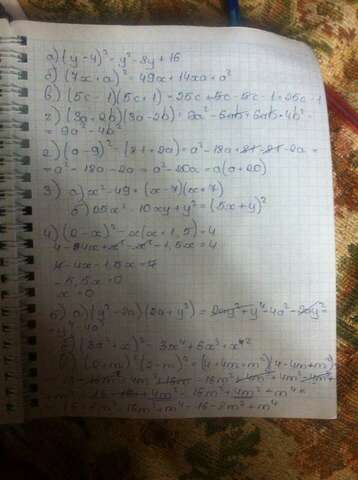 а) (y-4)² = y² - 8y + 16
б) (7x+a)² = 49x + 14xa + a²
в) (5c-1)(5c+1) = 25c + 5c - 5c - 1 = 25c - 1
г) (3a+2b)(3a-2b) = 9a² - 6ab + 6ab - 4b² =
= 9a² - 4b²
2) (a-9)² - (81+2a) = a² - 18a + 81 - 81 - 2a =
= a² - 18a - 2a = a² - 20a = a(a+20)
3) а) x² - 49 = (x-7)(x+7)
б) 25x² - 10xy + y² = (5x+y)²
4) (2-x)² - x(x+1,5) = 4
4 - 4x + x² - x² - 1,5x = 4
4 - 4x - 1,5x = 4
-5,5x = 0
x = 0
5 а) (y² - 2a)(2a + y²) =
= y⁴ - 4a²
б) (3x² + x)² =
в) (2+m)²(2-m)² = (4+4m+m²)(4-4m+m²)